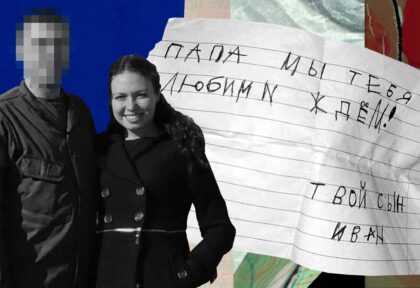 ПАПА МЫ ТЕБЯ
ЛЮБИМ И ЖДЁМ!
ТВОЙ СЫН
ИВАН